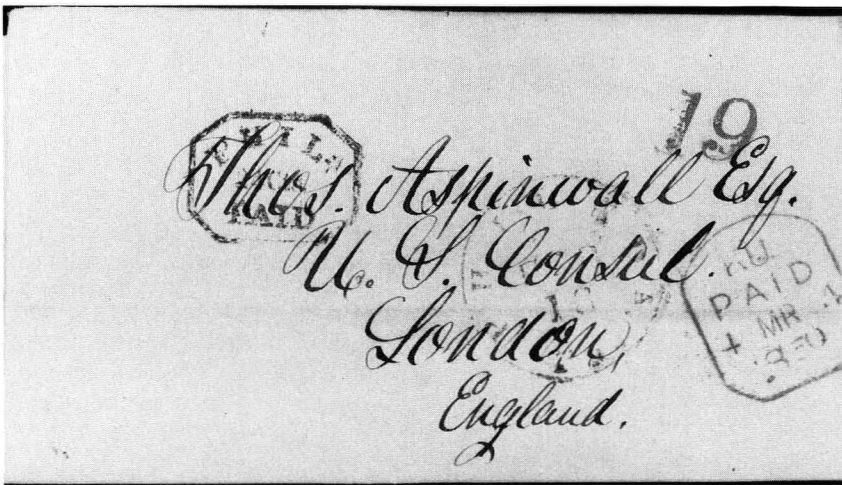 19
PHILA
PAID
Thos. Aspinwall Esq.
U. S. Consul.
London,
England.
PAID
MR